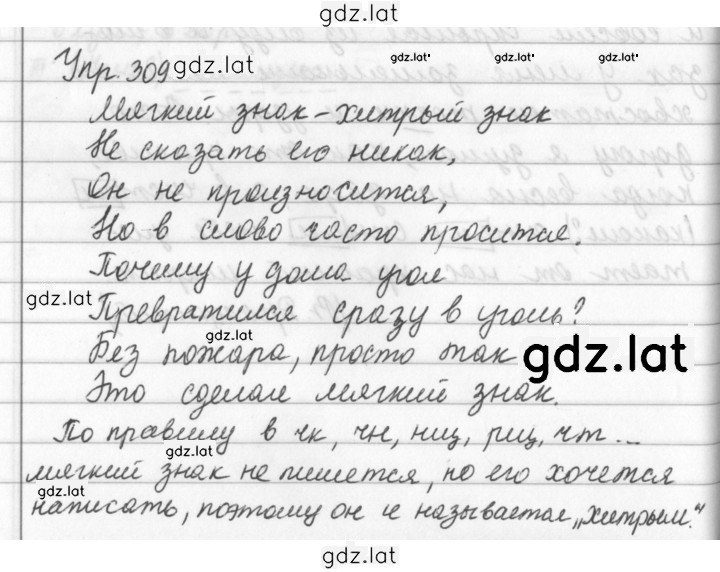 gdz.lat
Упр. 309 gdz.lat gdz.lat gdz.lat
Мягкий знак – хитрый знак
Не сказать его никак,
Он не произносится,
Но в слово часто просится.
Почему у дома угол
gdz.lat
Превратился сразу в уголь?
gdz.lat
Без пожара, просто так
gdz.lat
Это сделал мягкий знак.
По правилу в чк, чн, нщ, рщ, чт ...
gdz.lat
мягкий знак не пишется, но его хочется
gdz.lat
написать, поэтому он и называется „хитрым".
gdz.lat